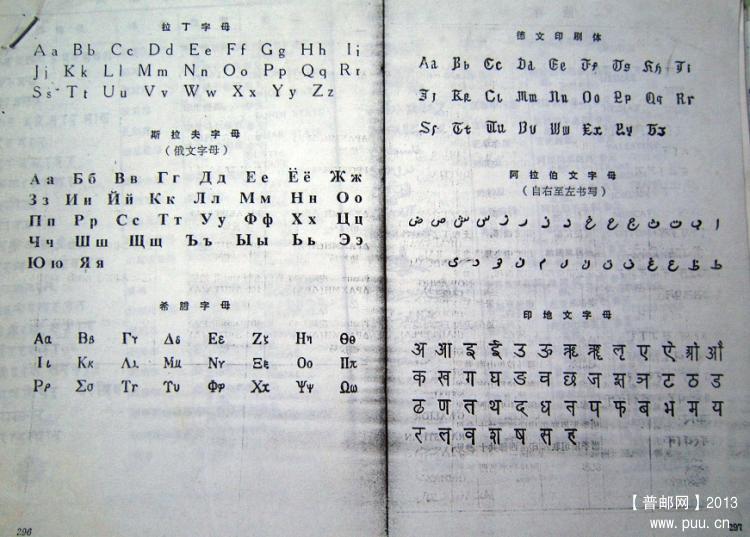 拉丁字母
Aa Bb Cc Dd Ee Ff Gg Hh Ii
Jj Kk Ll Mm Nn Oo Pp Qq Rr
Ss Tt Uu Vv Ww Xx Yy Zz
斯拉夫字母
（俄文字母）
Аа Бб Вв Гг Дд Ее Ёё Жж
Зз Ии Йй Кк Лл Мм Нн Оо
Пп Рр Сс Тт Уу Фф Хх Цц
Чч Шш Щщ Ъъ Ыы Ьь Ээ
Юю Яя
希腊字母
Αα Ββ Γγ Δδ Εε Ζζ Ηη Θθ
Ιι Κκ Λλ Μμ Νν Ξξ Οο Ππ
Ρρ Σσ Ττ Υυ Φφ Χχ Ψψ Ωω
296
德文印刷体
Aa Bb Cc Dd Ee Ff Gg Hh Ii
Jj Kk Ll Mm Nn Oo Pp Qq Rr
Ss Tt Uu Vv Ww Xx Yy Zz
阿拉伯文字母
（自右至左书写）
ا ب ت ث ج ح خ د ذ ر ز س ش ص ض
ط ظ ع غ ف ق ك ل م ن ه و ى
印地文字母
अ आ इ ई उ ऊ ऋ ॠ ऌ ए ऐ ओ औ
क ख ग घ ङ च छ ज झ ञ ट ठ ड
ढ ण त थ द ध न प फ ब भ म य
र ल व श ष स ह
297
【普邮网】2013
www.puu.cn